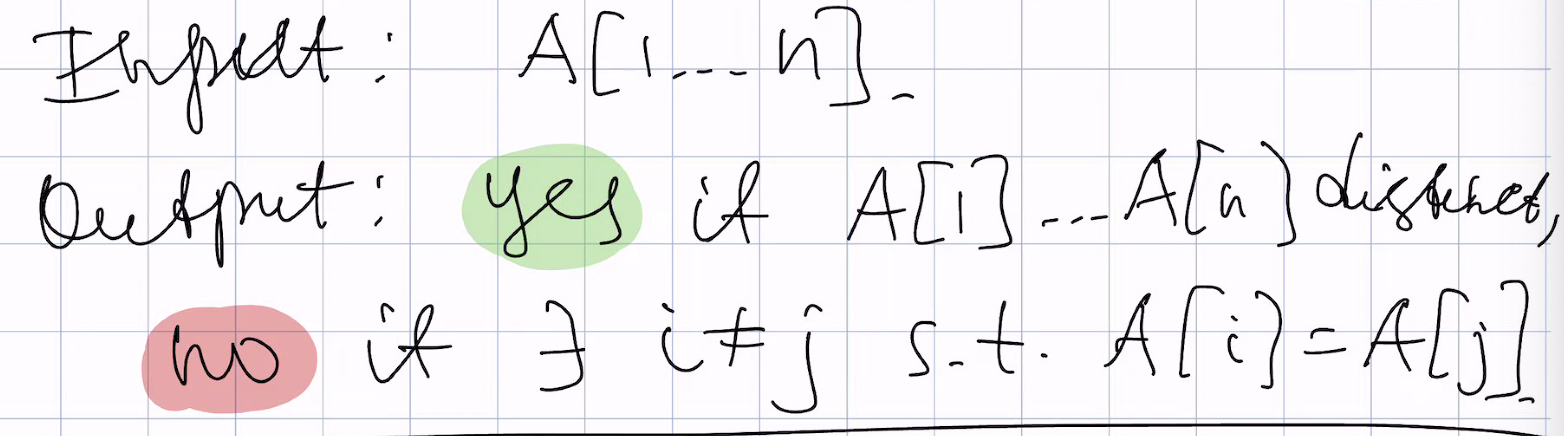 Input: A[1...n].
Output: yes if A[1]...A[n] distinct,
no if ∃ i≠j s.t. A[i]=A[j].